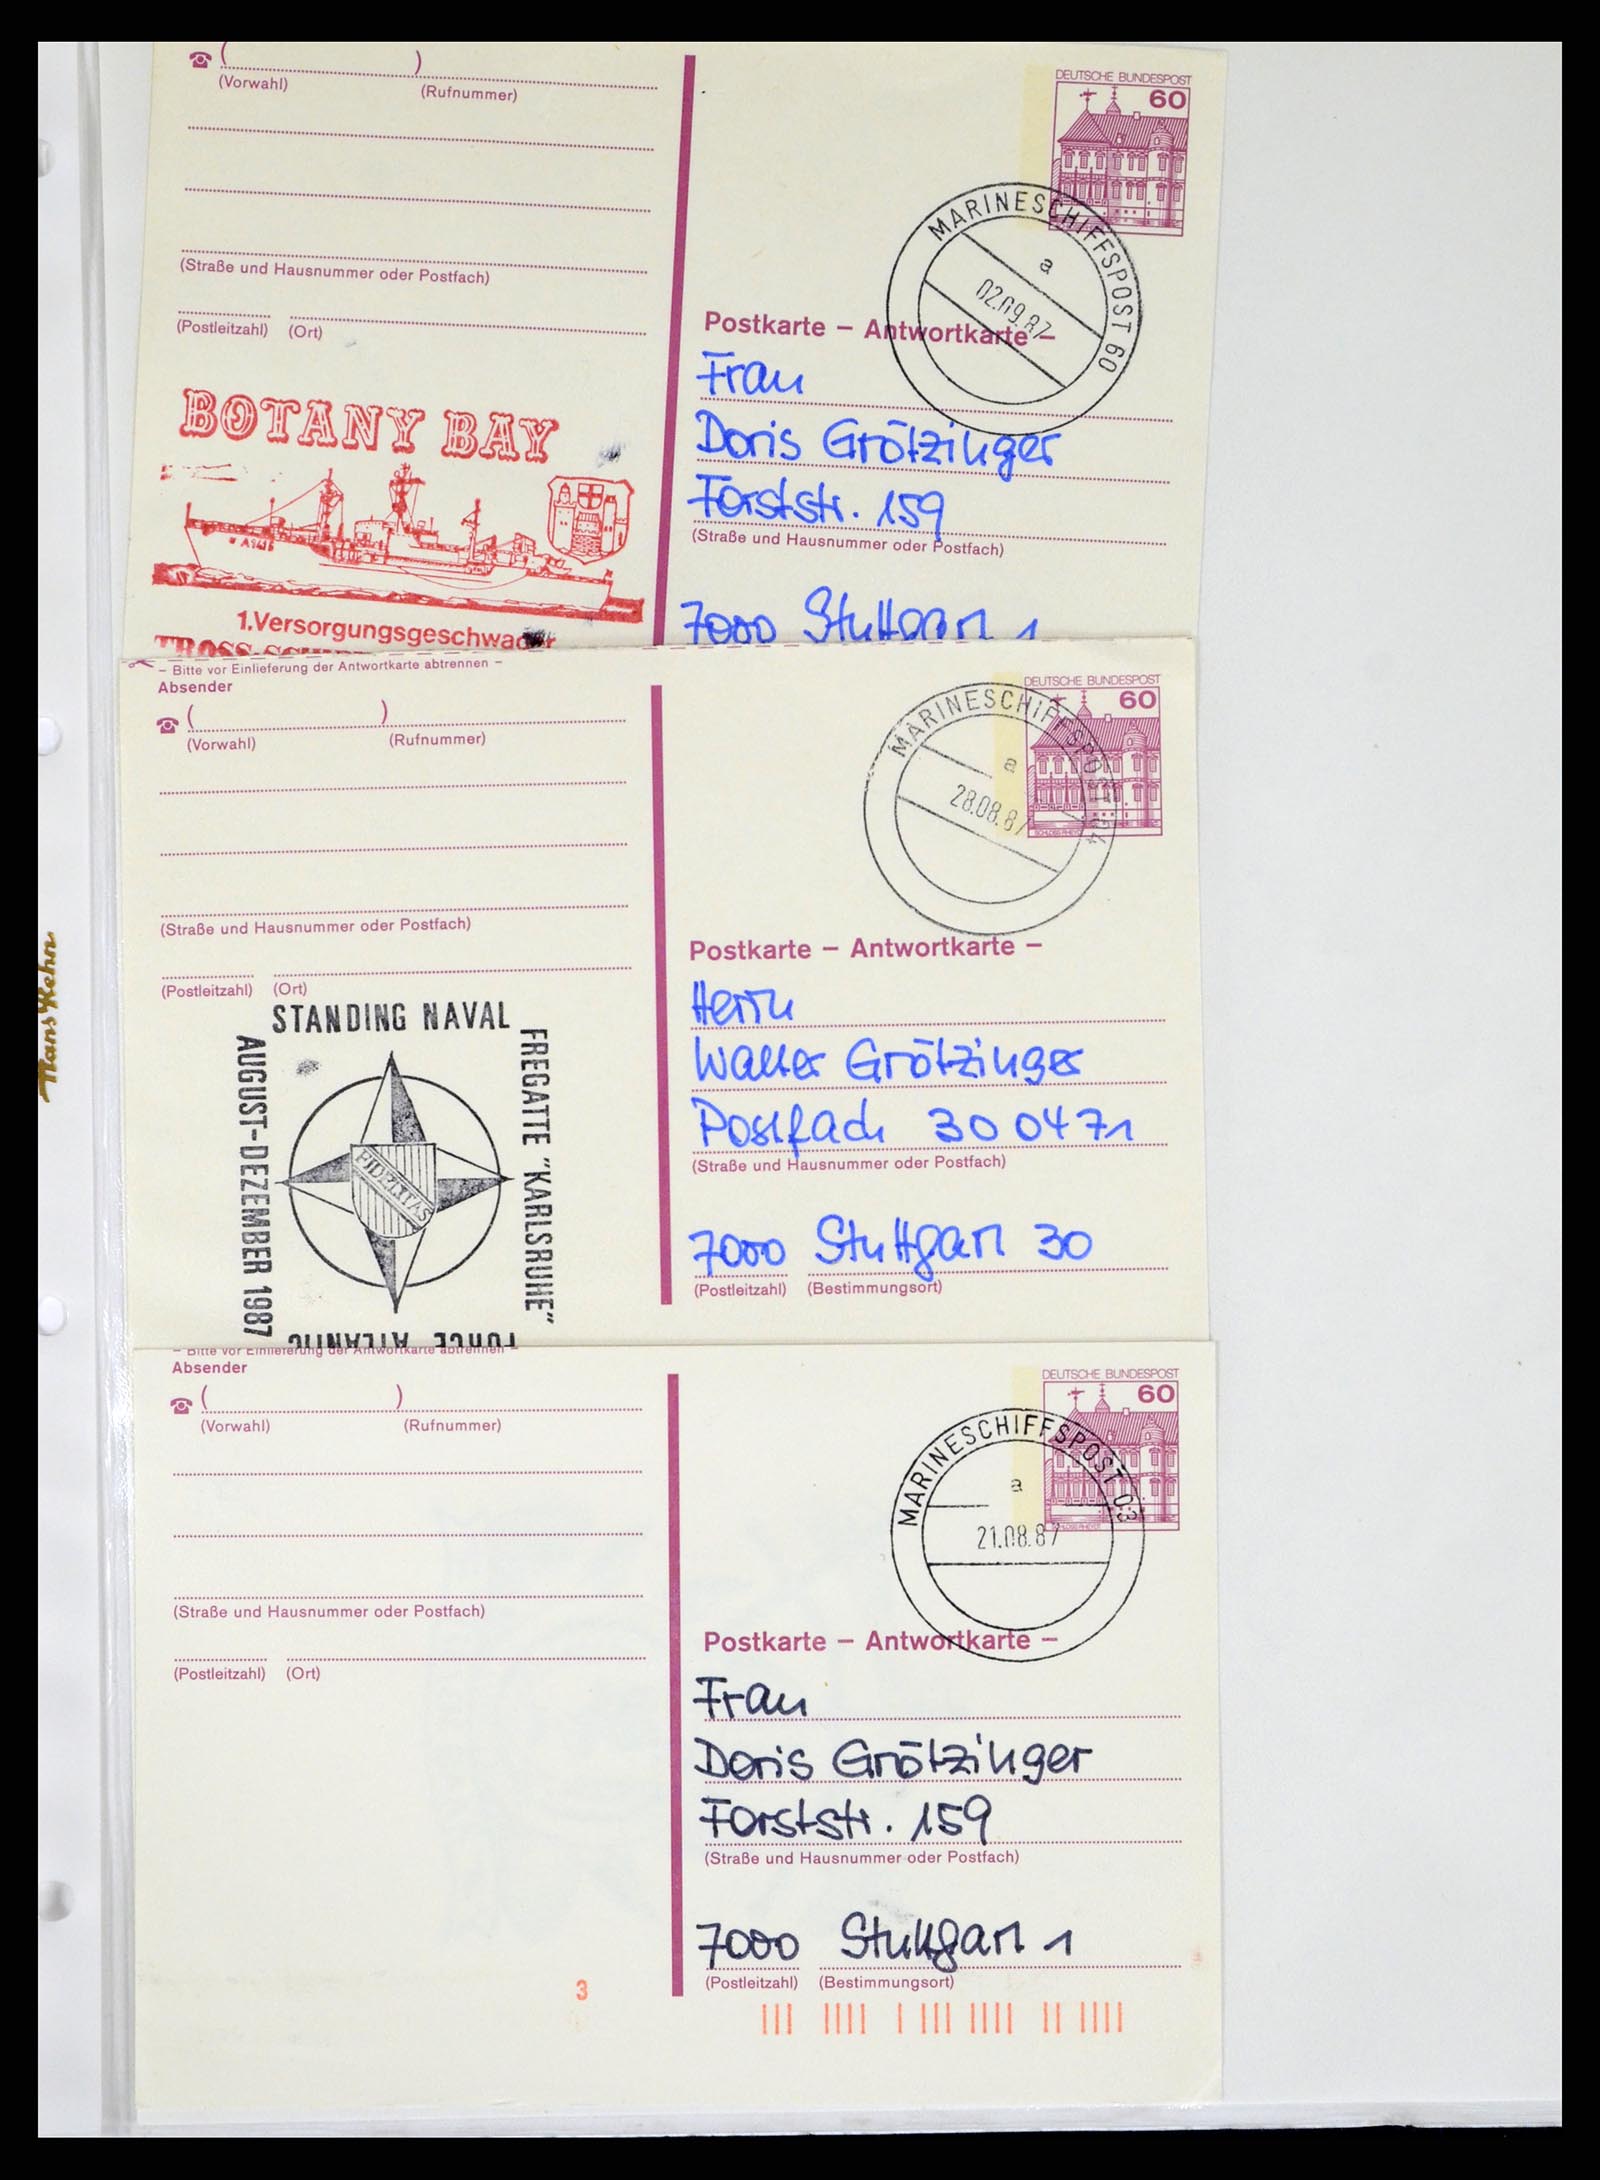 ( )
(Vorwahl) (Rufnummer)
(Straße und Hausnummer oder Postfach)
(Postleitzahl) (Ort)
BOTANY BAY
1.Versorgungsgeschwader
DEUTSCHE BUNDESPOST
60
MARINESCHIFFSPOST 60
a
02.09.87
Postkarte – Antwortkarte –
Frau
Doris Grötzinger
Forststr. 159
(Straße und Hausnummer oder Postfach)
7000 Stuttgart 1
– Bitte vor Einlieferung der Antwortkarte abtrennen –
Absender
( )
(Vorwahl) (Rufnummer)
(Straße und Hausnummer oder Postfach)
(Postleitzahl) (Ort)
STANDING NAVAL
FREGATTE "KARLSRUHE"
FORCE ATLANTIC
AUGUST-DEZEMBER 1987
FIDELITAS
DEUTSCHE BUNDESPOST
60
MARINESCHIFFSPOST
a
28.08.87
Postkarte – Antwortkarte –
Herrn
Walter Grötzinger
Postfach 30 04 71
(Straße und Hausnummer oder Postfach)
7000 Stuttgart 30
(Postleitzahl) (Bestimmungsort)
– Bitte vor Einlieferung der Antwortkarte abtrennen –
Absender
( )
(Vorwahl) (Rufnummer)
(Straße und Hausnummer oder Postfach)
(Postleitzahl) (Ort)
3
DEUTSCHE BUNDESPOST
60
MARINESCHIFFSPOST 03
a
21.08.87
Postkarte – Antwortkarte –
Frau
Doris Grötzinger
Forststr. 159
(Straße und Hausnummer oder Postfach)
7000 Stuttgart 1
(Postleitzahl) (Bestimmungsort)